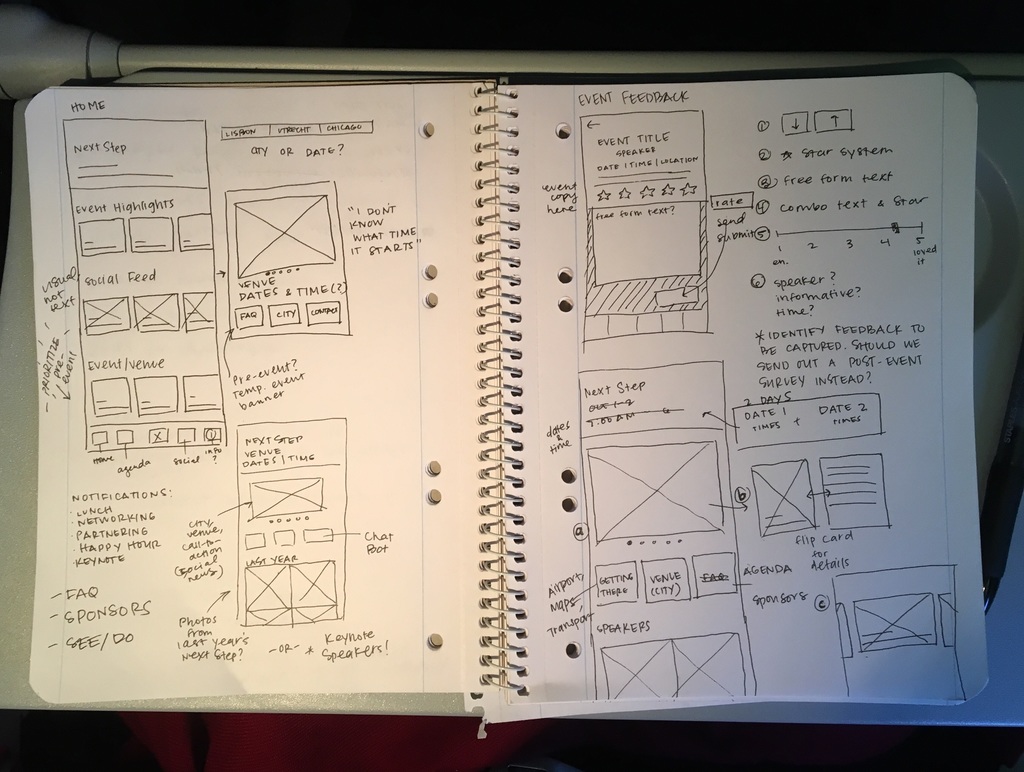 HOME
Next Step
Event Highlights
Social Feed
Event/venue
Home
agenda
social
info
?
visual,
not
text
- PRIORITIZE
pre-
event
NOTIFICATIONS:
· LUNCH
· NETWORKING
· PARTNERING
· HAPPY HOUR
· KEYNOTE
- FAQ
- SPONSORS
- SEE/DO
LISBON | UTRECHT | CHICAGO
CITY OR DATE?
"I DON'T
KNOW
WHAT TIME
IT STARTS"
VENUE
DATES & TIME(?)
FAQ
CITY
CONTACT
Pre-event?
Temp. event
banner
NEXT STEP
VENUE
DATES | TIME
CITY,
venue,
call-to-
action
(social
news)
Chat
Bot
LAST YEAR
Photos
From
last year's
Next Step?
- OR - * Keynote
Speakers!
EVENT FEEDBACK
←
EVENT TITLE
SPEAKER
DATE | TIME | LOCATION
event
copy
here
free form text?
rate
send
submit
① ↓ ↑
② ☆ star system
③ free form text
④ combo text & star
⑤
1 2 3 4 5
loved
it
⑥ speaker?
informative?
time?
* IDENTIFY FEEDBACK TO
BE CAPTURED. SHOULD WE
SEND OUT A POST-EVENT
SURVEY INSTEAD?
2 DAYS
DATE 1 + DATE 2
TIMES TIMES
Next Step
7:00 AM
dates
&
time
ⓐ
ⓑ
flip card
for
details
Airport
Maps
Transport
GETTING
THERE
VENUE
(CITY)
FAQ
AGENDA
Sponsors
ⓒ
SPEAKERS